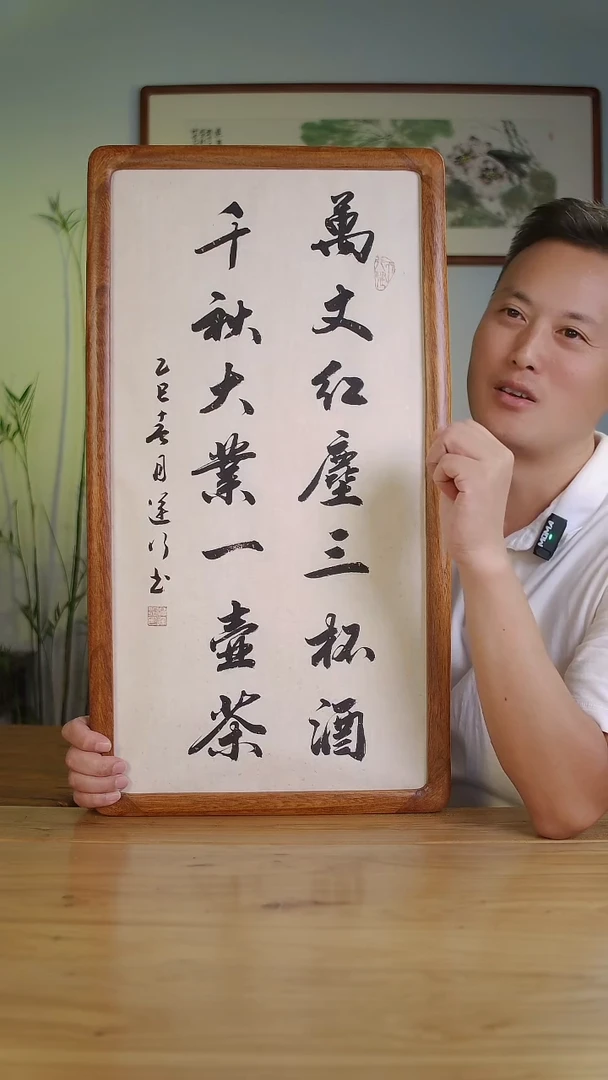 萬丈紅塵三杯酒
千秋大業一壺茶
乙巳春月道行书
MOMA